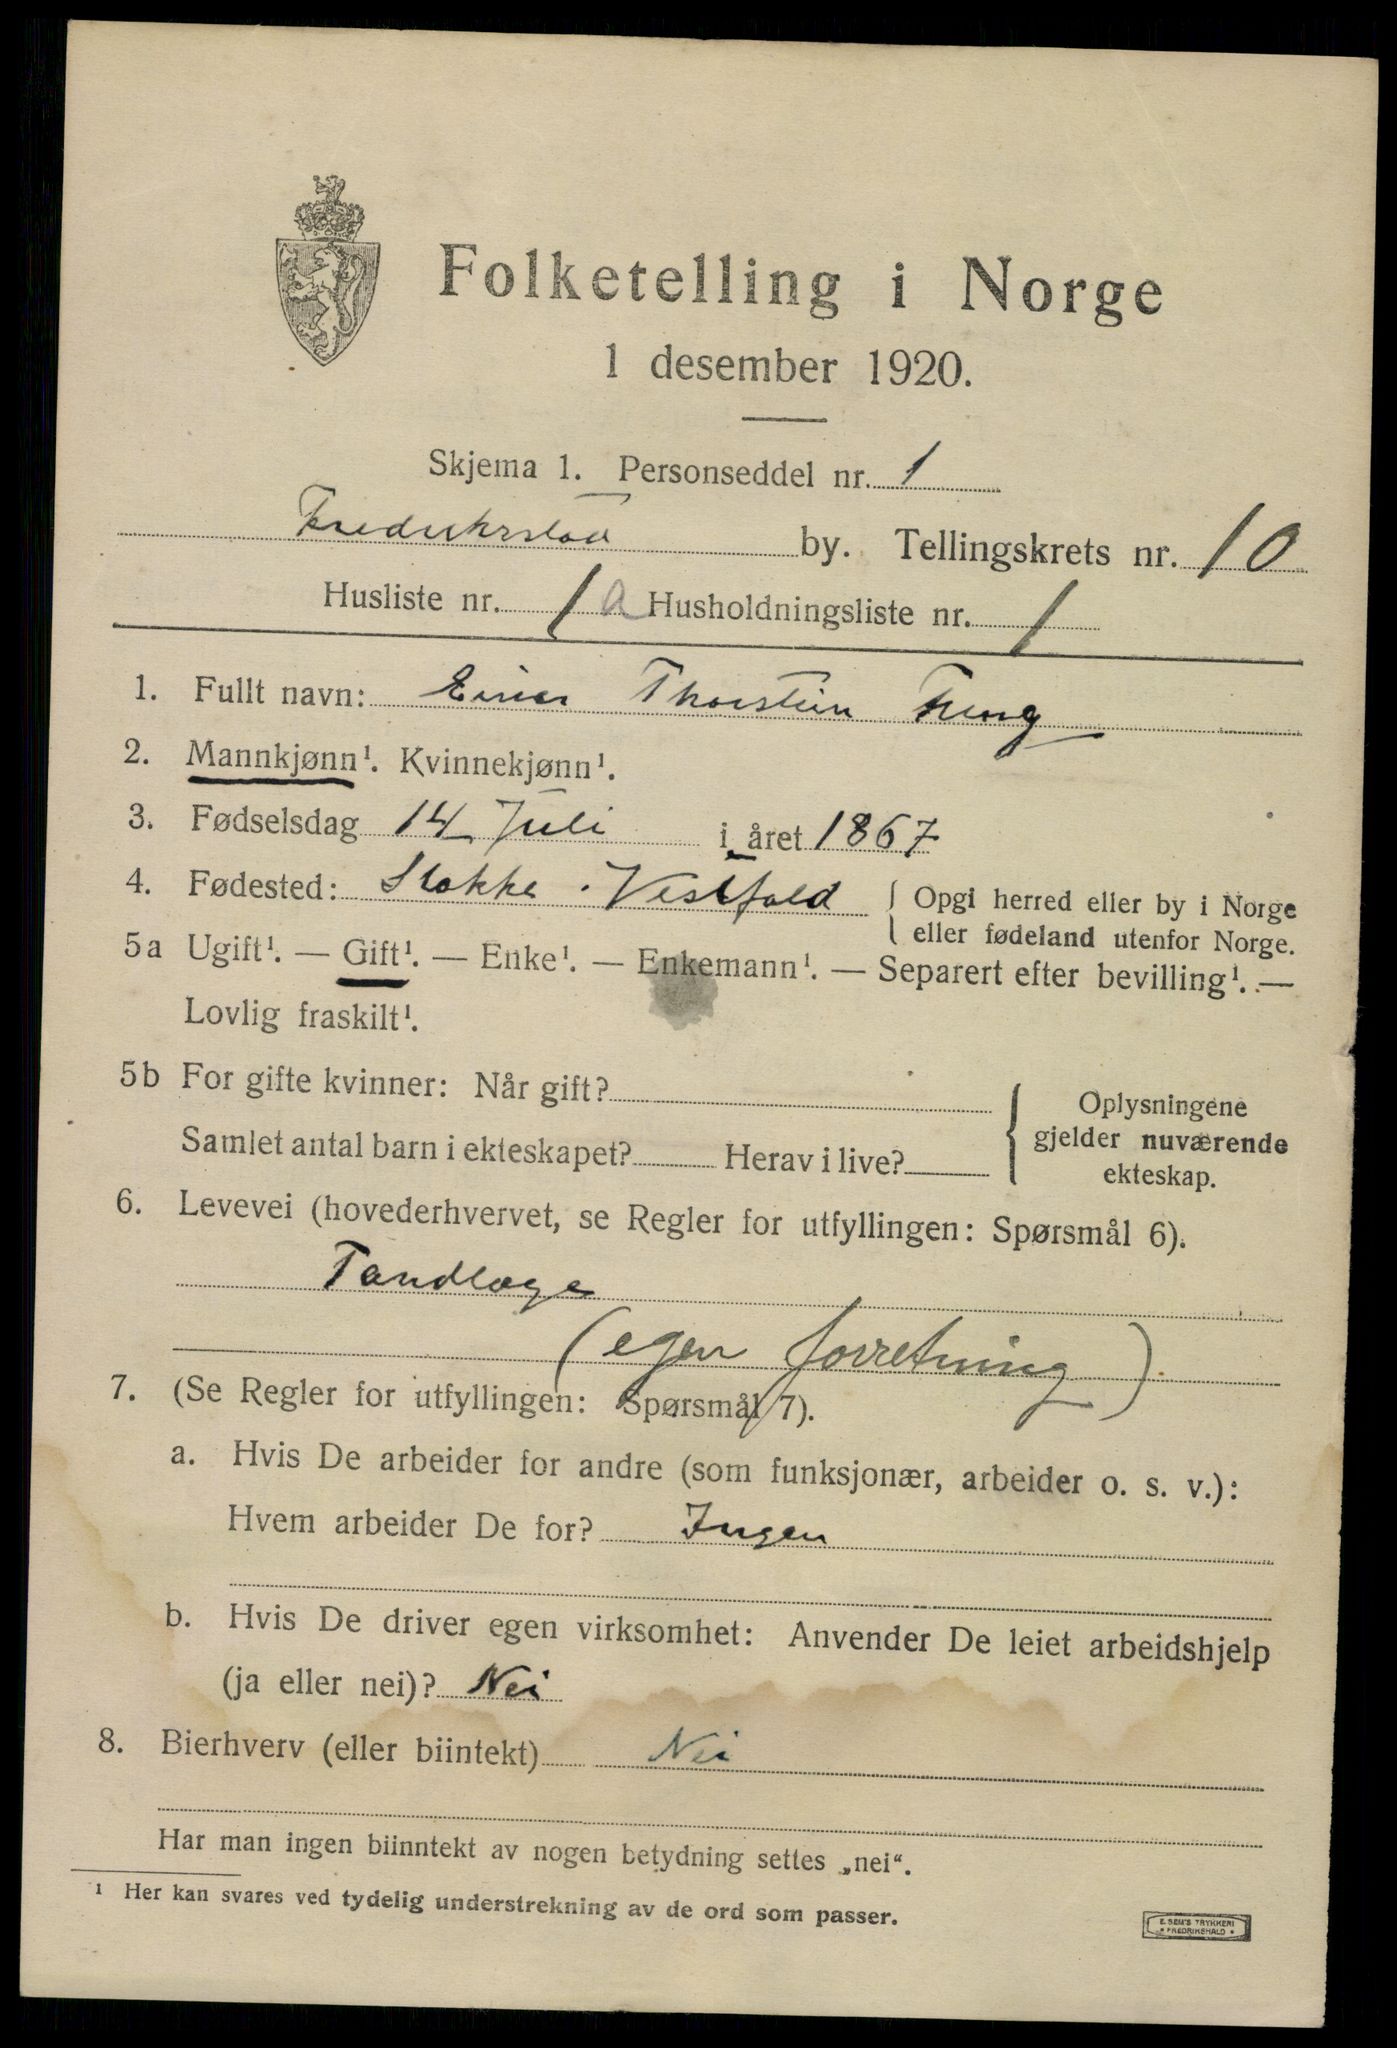 Folketelling i Norge
1 desember 1920.
Skjema 1. Personseddel nr. 1
Fredrikstad by. Tellingskrets nr. 10
Husliste nr. 1 a Husholdningsliste nr. 1
1. Fullt navn: Einar Thorstein
2. Mannkjønn¹. Kvinnekjønn¹.
3. Fødselsdag 14 Juli i året 1867
4. Fødested: Stokke. Vestfold { Opgi herred eller by i Norge
eller fødeland utenfor Norge.
5a Ugift¹. — Gift¹. — Enke¹. — Enkemann¹. — Separert efter bevilling¹. —
Lovlig fraskilt¹.
5b For gifte kvinner: Når gift?
Samlet antal barn i ekteskapet? Herav i live?
{ Oplysningene
gjelder nuværende
ekteskap.
6. Levevei (hovederhvervet, se Regler for utfyllingen: Spørsmål 6).
Tandlæge
(egen forretning).
7. (Se Regler for utfyllingen: Spørsmål 7).
a. Hvis De arbeider for andre (som funksjonær, arbeider o. s. v.):
Hvem arbeider De for? Ingen
b. Hvis De driver egen virksomhet: Anvender De leiet arbeidshjelp
(ja eller nei)? Nei
8. Bierhverv (eller biintekt) Nei
Har man ingen biinntekt av nogen betydning settes „nei“.
¹ Her kan svares ved tydelig understrekning av de ord som passer.
E. SEM'S TRYKKERI
• FREDRIKSHALD •